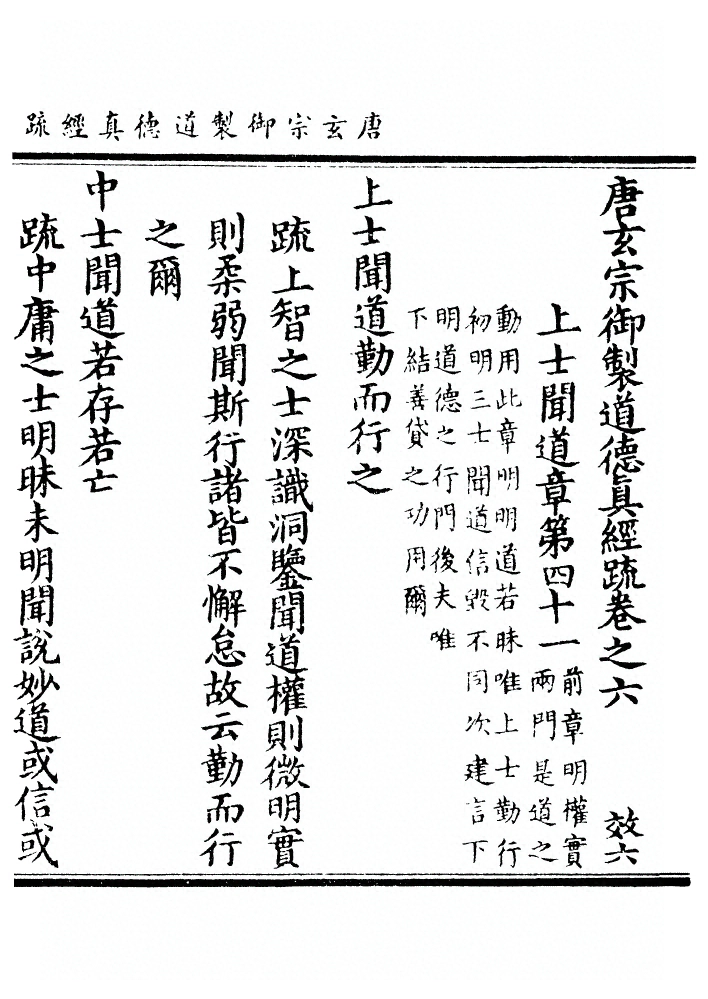 唐玄宗御製道德真經疏
唐玄宗御製道德眞經疏卷之六 效六
上士聞道章第四十一 前章明權實
兩門是道之
動用此章明明道若昧唯上士勤行
初明三士聞道信毀不同次建言下
明道德之行門後夫唯
下結善貸之功用爾
上士聞道勤而行之
疏上智之士深識洞鑒聞道權則微明實
則柔弱聞斯行諸皆不懈怠故云勤而行
之爾
中士聞道若存若亡
疏中庸之士明昧未明聞說妙道或信或